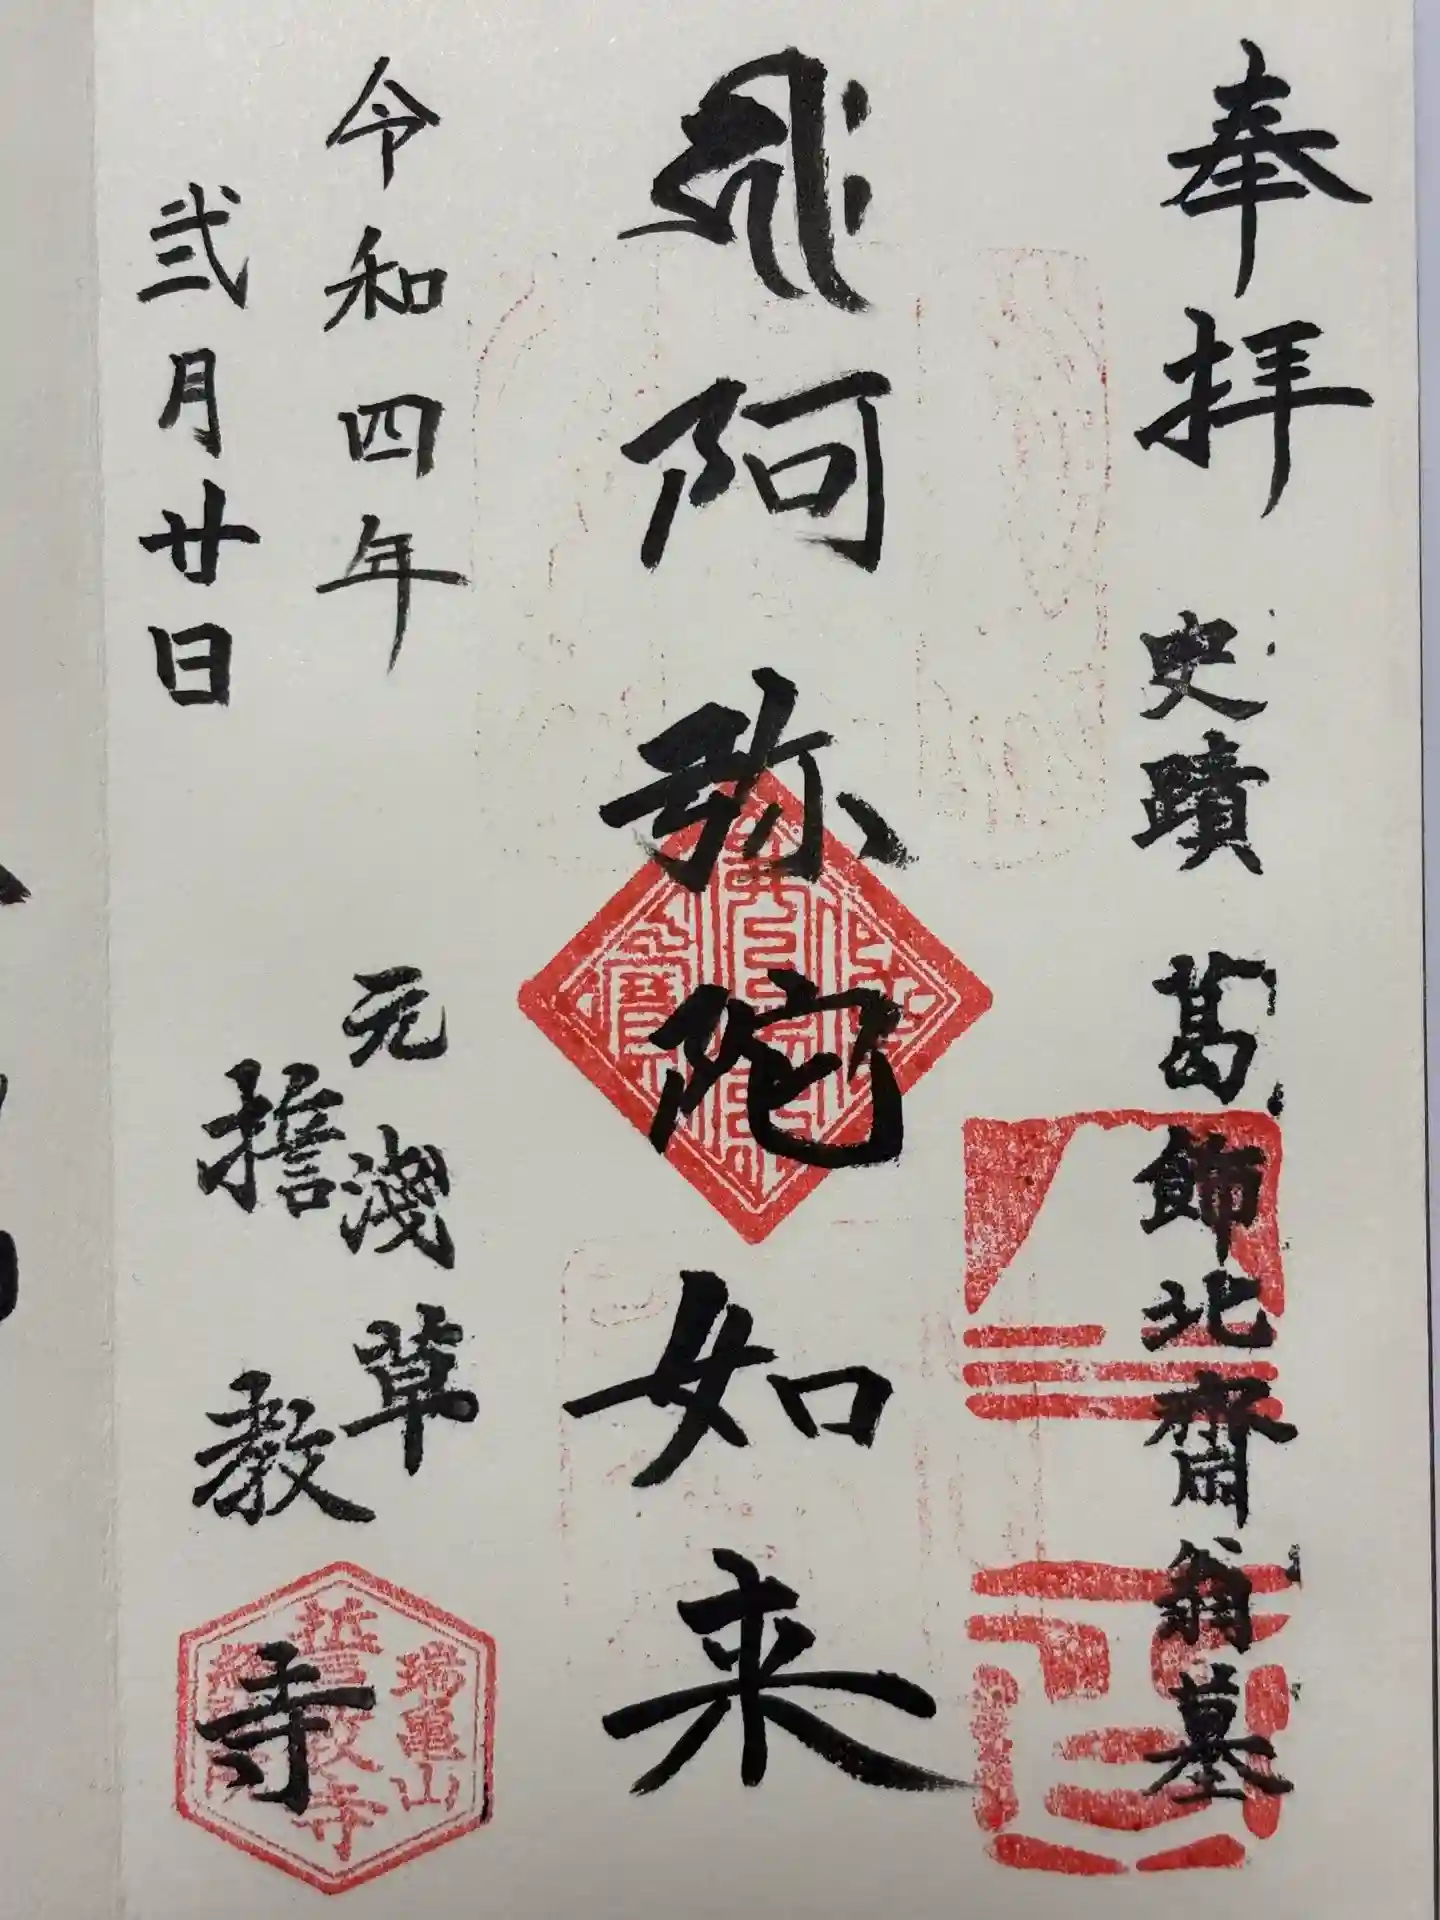 奉拝
史蹟 葛飾北齋翁墓
阿弥陀如来
令和四年
弐月廿日
元淺草
誓教寺
瑞亀山
誓教寺